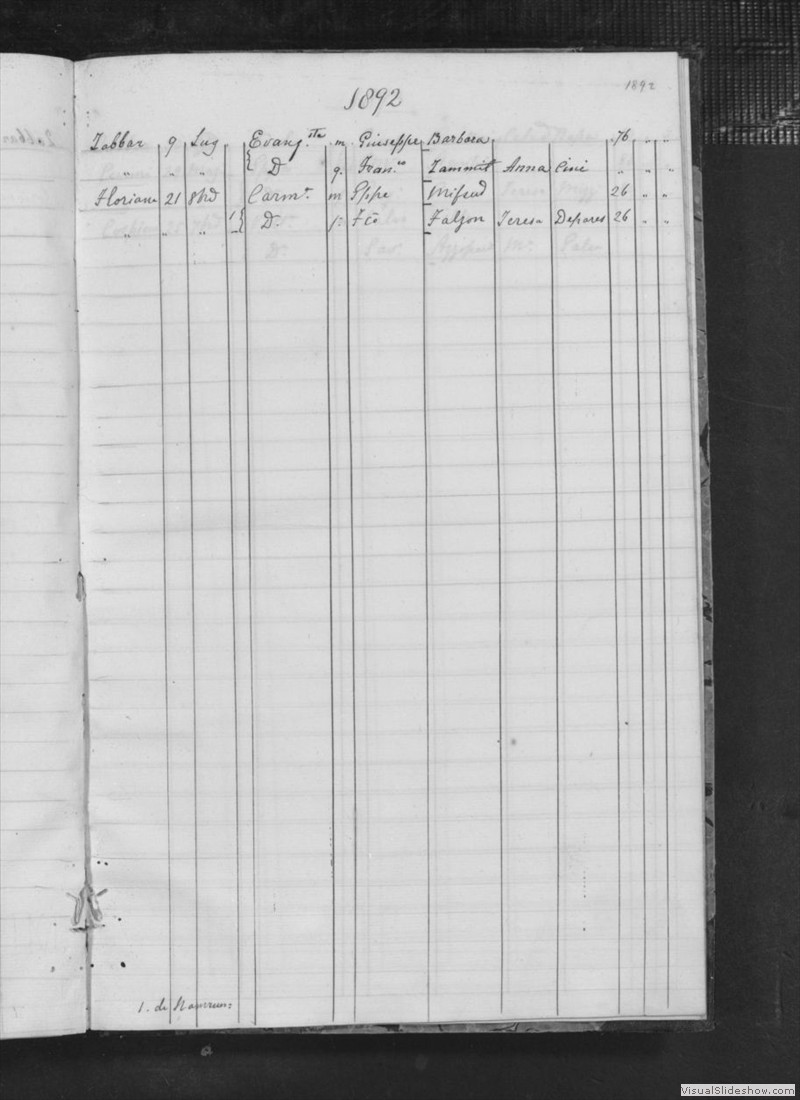 1892
1892
Zabbar 9 Lug Evang.sta m Giuseppe Barbara 76 " "
" " " { D q. Fran.co Zammit Anna Cini " " "
Floriana 21 8bre Carm.a m Gppe Mifsud 26 " "
" " " 1 { D.a f: Fco Falzon Teresa Depares 26 " "
1. di
VisualSlideshow.com